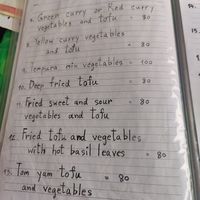 Green curry or Red curry
vegetables and tofu = 80
Yellow curry vegetables
and tofu = 80
9. Tempura mix vegetables = 100
10. Deep fried tofu = 80
11. Fried sweet and sour = 80
vegetables and tofu
12. Fried tofu and vegetables
with hot basil leaves = 80
13. Tom yam tofu = 80
and vegetables
14.
15.